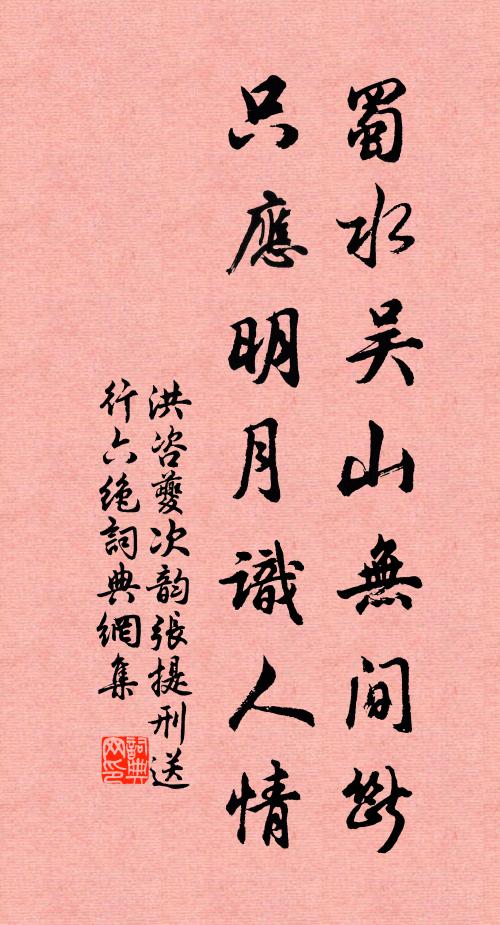 蜀水吴山無間斷
只應明月識人情
洪咨夔次韵張提刑送
行六絶詞典網集
詞典网印